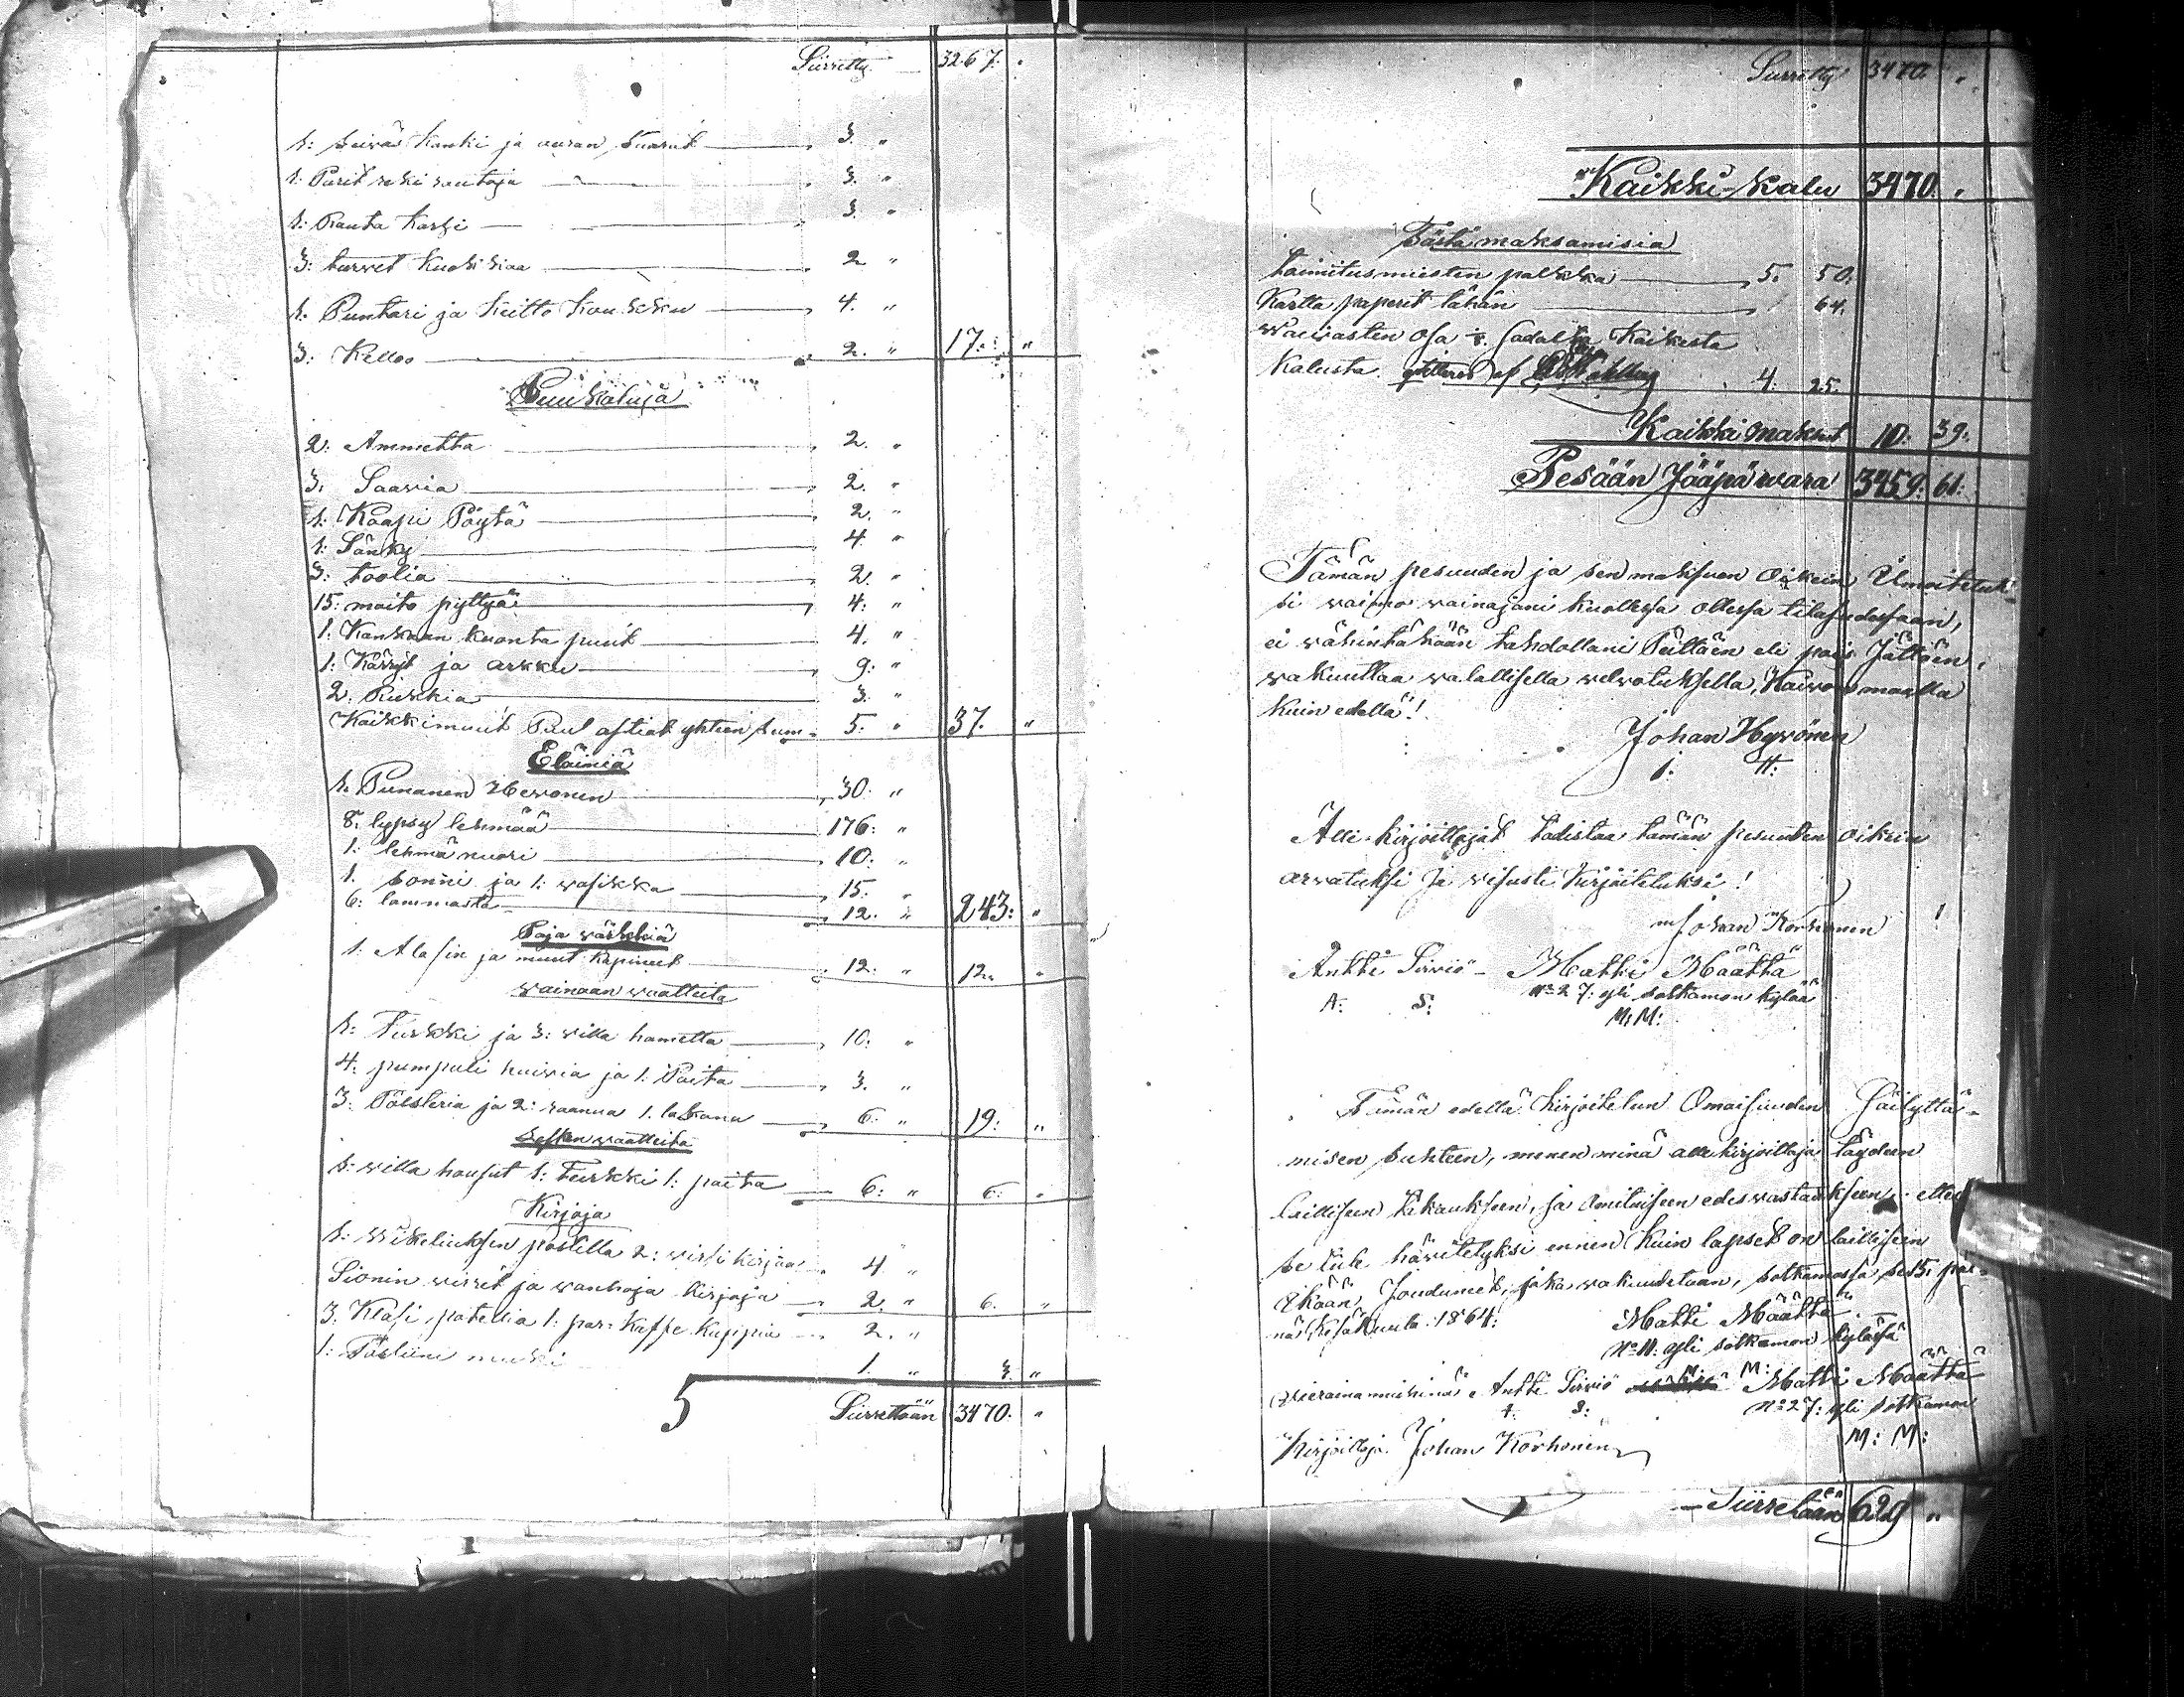 Siirretty 3267. "
1: seiväs Kanki ja auran Kuurut 3. "
1: Parit reki rautoja 3. "
1: Rauta Karhi 3. "
3: turvet Kuokkaa 2 "
1. Puntari ja Keitto Koukku 4. "
3: Kelloo 2. " 17: "
Puukaluja
2: Ammetta 2. "
3. Saavia 2. "
1. Kaapi Pöytä 2. "
1: Sänky 4. "
3: toolia 2. "
15: maito pyttyä 4: "
1: Kankaan kuonta puut 4. "
1: Kärryt ja arkku 9: "
2. Ruskkia 3. "
Kaikki muut Puu astiat yhteen sum. 5. " 37. "
Eläimiä
1. Punanen Hevonen 30. "
8. lypsy lehmää 176: "
1: lehmä nuori 10: "
1. sonni ja 1: vasikka 15. "
6: lammasta 12. " 243: "
Paja värkkiä
1: Alasin ja muut kapineet 12. " 12. "
wainaan waatteita
1: Turkki ja 3: villa hametta 10: "
4: pumpuli huivia ja 1: Paita 3. "
3: Pölsteria ja 2: raanua 1. lakana 6: " 19: "
Lesken waatteita
1: villa housut 1: Turkki 1: paita 6: " 6: "
Kirjoja
1: Wikeliuksen postilla 2: virsi kirjaa 4 "
Sionin virret ja vanhoja kirjoja 2. " 6. "
3. Klasi potellia 1: par: Kaffe Kuppia 2. "
1: Posliini muki 1. " 3. "
5 Siirretään 3470. "
Siirretty 3470. "
Kaikki-Kalu 3470. "
Tästä maksamisia
toimitusmiesten palkka 5. 50.
Kartta paperit tähän 64.
Waivasten osa 1/8 sadalta Kaikesta
Kalusta. qvitteras af 4: 25.
Kaikki maksut 10: 39:
Pesään Jääpä wara 3459: 61:
Tämän pesuuden ja sen maksuen Oikein Ilmoitetuk-
si vaimo vainajani kuollessa ollessa tilasudessaan,
ei vähintäkään tahdollani Peittäen eli pois Jättäen,
vakuuttaa valallisella velvotuksella, Kaivos maalla
kuin edellä!
Johan Hyvönen
J. H:
Alle kirjoittajat todistaa tämän pesuuden oikein
arvatuksi Ja visusti Kirjoitetuksi!
Johan Korhonen
Antti Sirviö - Matti Määttä
A: S: No 27: yli sotkamon kylää
M: M:
Tämän edellä kirjoitetun Omaisuuden Säilyttä-
misen suhteen, menen minä alle kirjoittaja täyteen
lailliseen takaukseen, ja omituiseen edesvastaukseen, ettei
se tule hävitetyksi ennen kuin lapset on lailliseen
ikään Joudunet, joka vakuutetaan, sotkamossa se 15. päi-
nä Kesä Kuuta 1864: Matti Määttä
No 11: yli sotkamon kylässä
M: M:
vieraina miehinä: Antti Sirviö Matti Määttä
A: S: No 27: yli sotkamon
Kirjoittaja Johan Korhonen M: M:
Siirretään 629 "